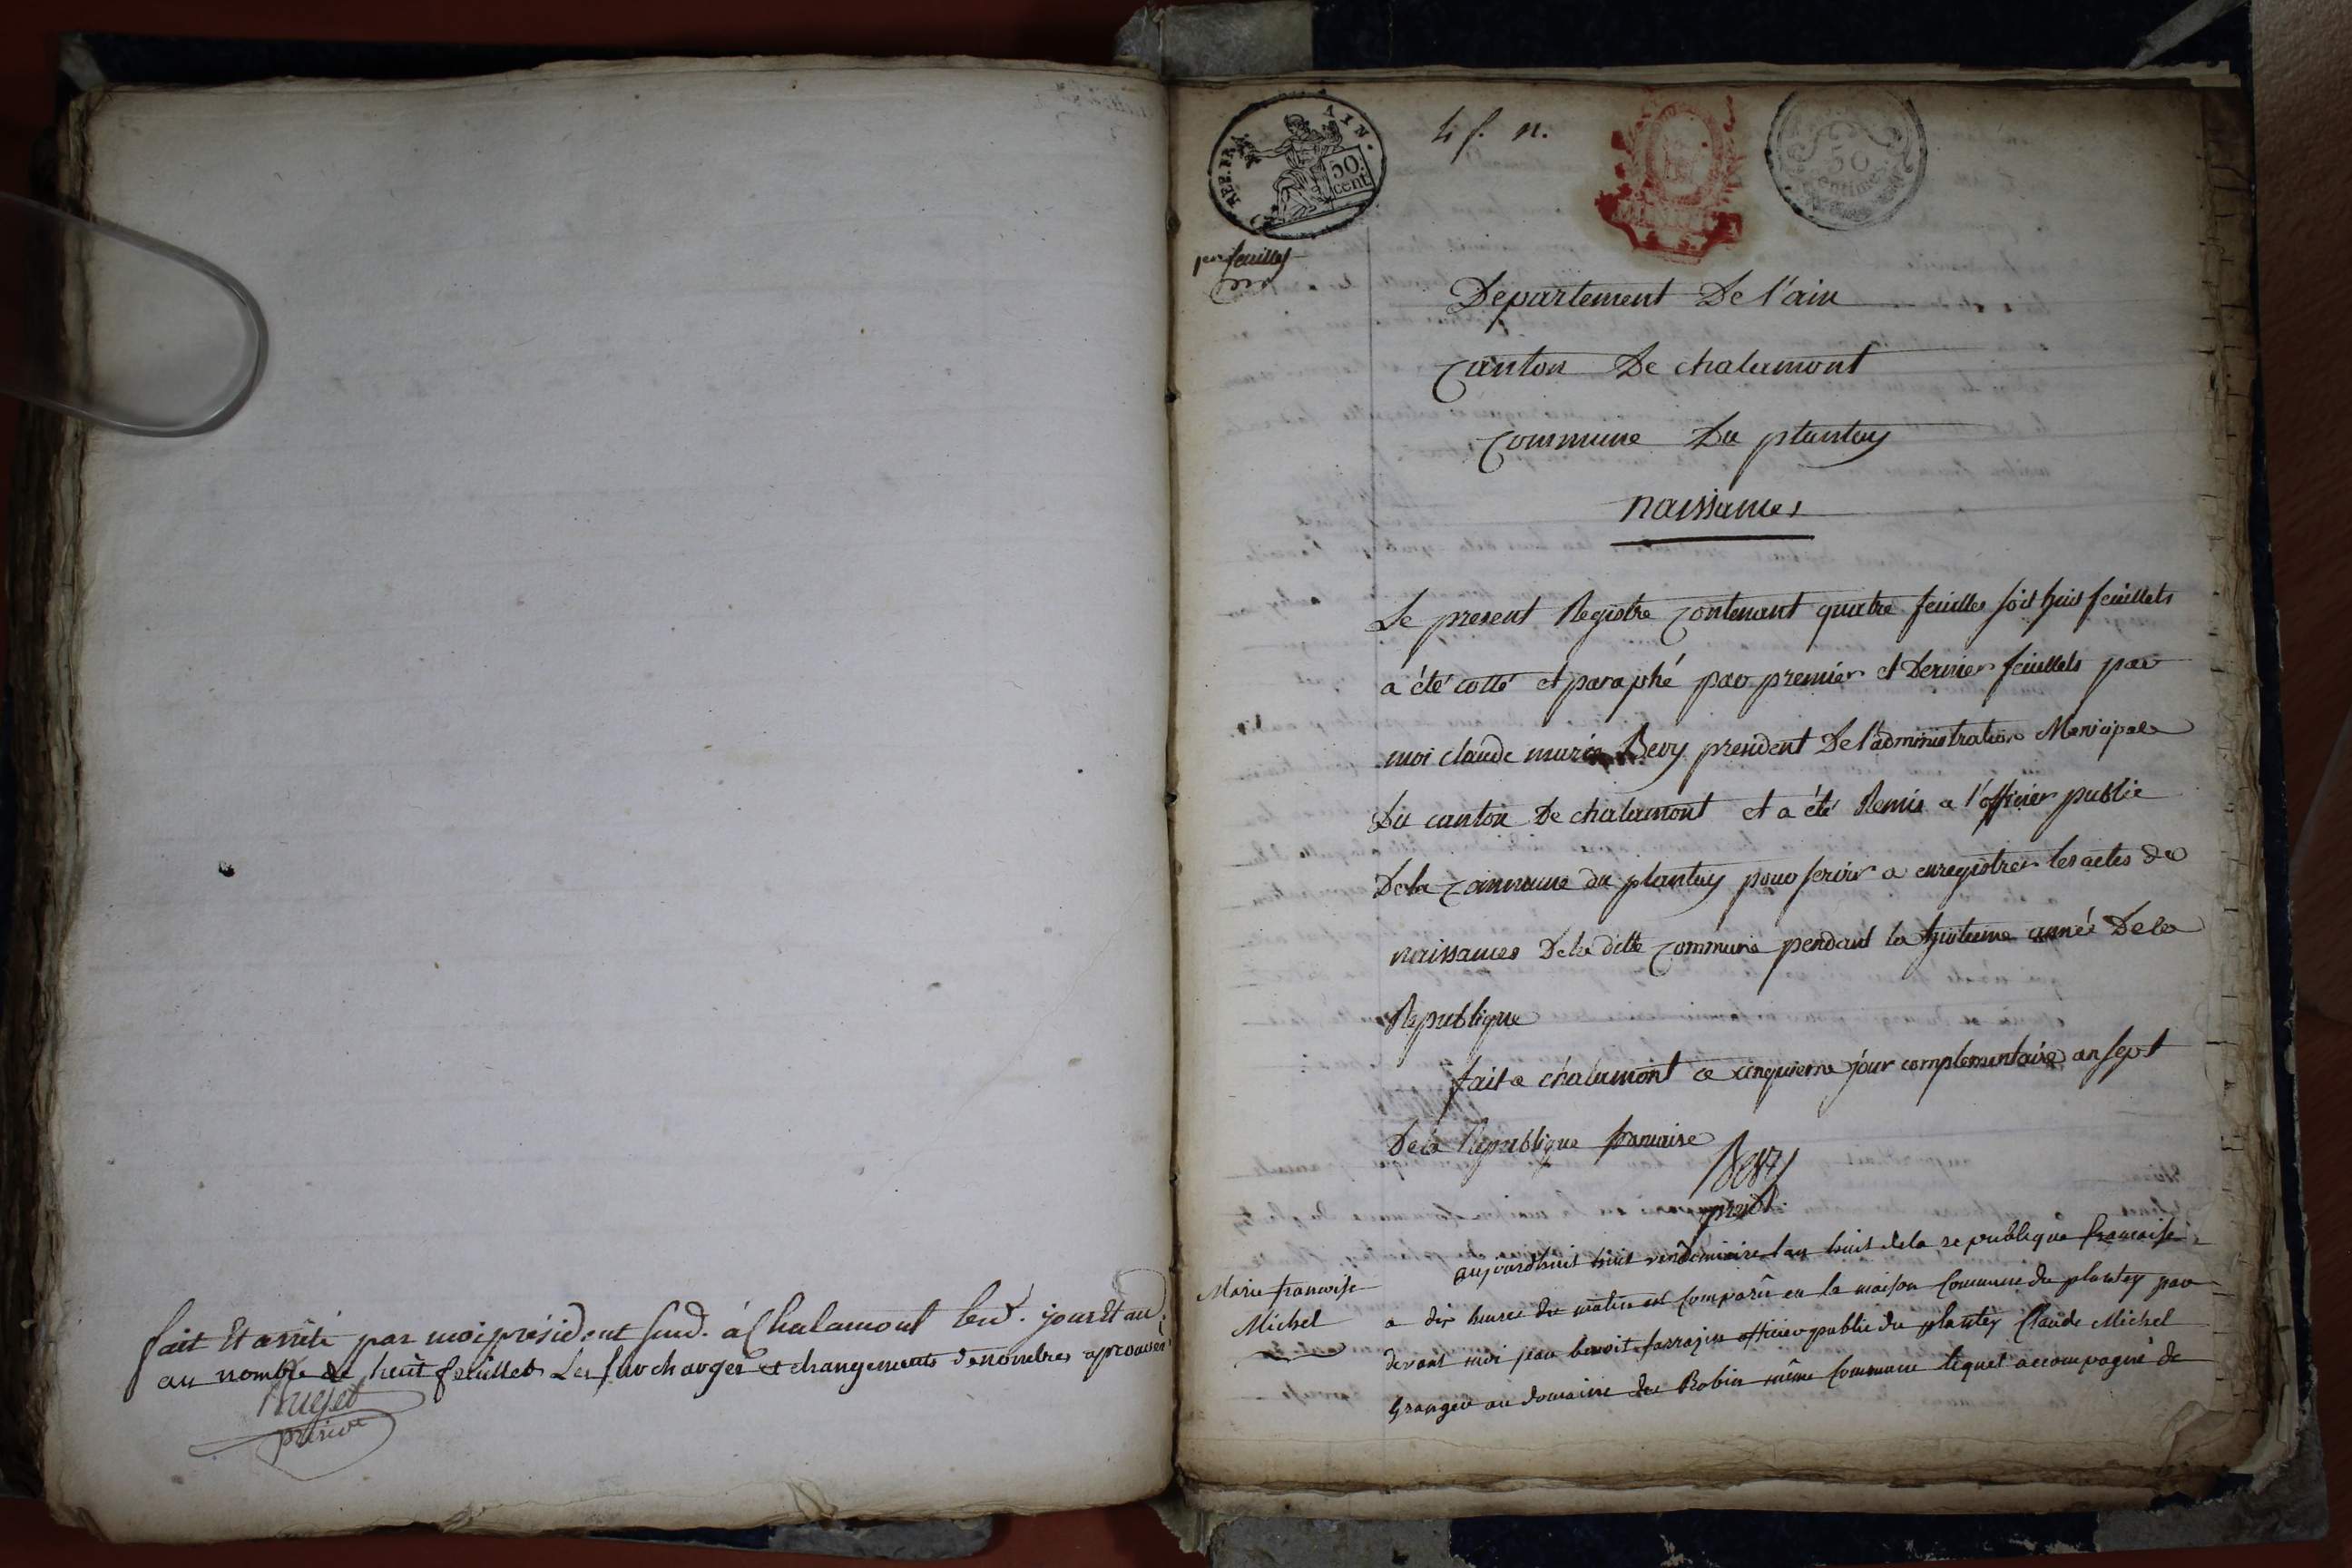 fait Et arrêté par moi président sud. à Chalamont led. jour Et an
au nombre de heuit feuillets Les surcharges et changements denombres aprouvés
REP. FRA
AIN.
50
cent.
4 f. n.
50
centimes
feuilles
Departement De l'ain
Canton De chalamont
Commune Du plantay
naissances
Le present Registre Contenant quatre feuilles soit huit feuillets
a été cotté et paraphé par premier et Dernier feuillets par
moi claude marie Bevy president De l'administration Municipale
Du canton De chalamont et a été Remis a l'officier public
De la Commune du plantay pour servir a enregistrer les actes de
naissances De la ditte Commune pendant la huitieme année De la
Republique
fait a chalamont ce cinquieme jour complementaire an sept
De la Republique francaise
Bevy
presidt
Marie francoise
Michel
aujourdhuit huit vendemiaire lan huit dela republique francaise
a dix heures du matin est Comparû en la maison Commune du plantey par
devant moi jean benoit sarrazin officier public du plantey Claude Michel
Granger au domaine du Robin même Commune lequel accompagné de